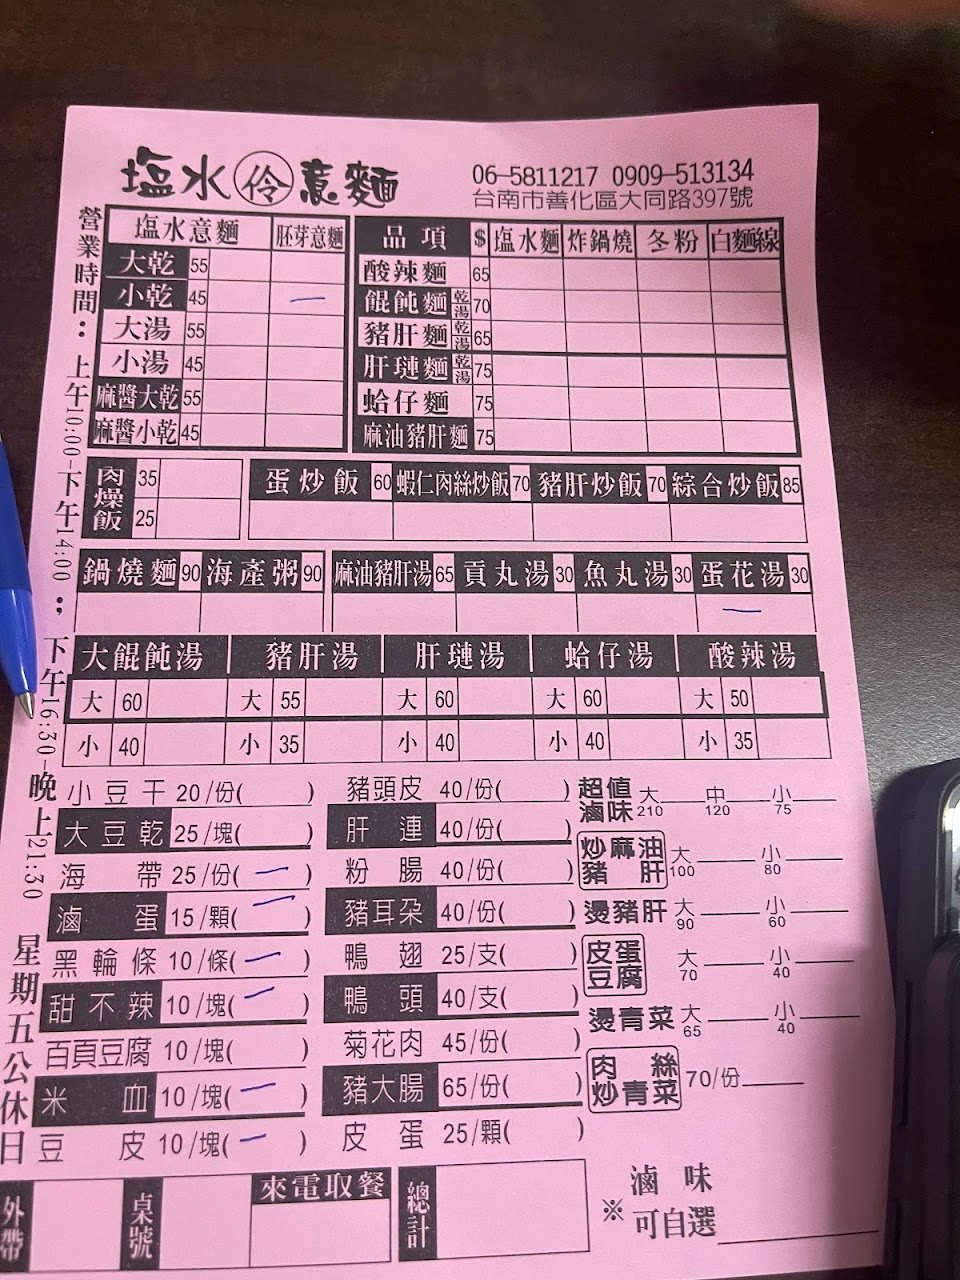 塩水伶意麵
06-5811217 0909-513134
台南市善化區大同路397號
營業時間：上午10:00-下午14:00；下午16:30-晚上21:30 星期五公休日
塩水意麵 胚芽意麵
大乾 55
小乾 45 一
大湯 55
小湯 45
麻醬大乾 55
麻醬小乾 45
品項 $ 塩水麵 炸鍋燒 冬粉 白麵線
酸辣麵 65
餛飩麵 乾湯 70
豬肝麵 乾湯 65
肝璉麵 乾湯 75
蛤仔麵 75
麻油豬肝麵 75
肉燥飯 35
25
蛋炒飯 60 蝦仁肉絲炒飯 70 豬肝炒飯 70 綜合炒飯 85
鍋燒麵 90 海產粥 90 麻油豬肝湯 65 貢丸湯 30 魚丸湯 30 蛋花湯 30
一
大餛飩湯 豬肝湯 肝璉湯 蛤仔湯 酸辣湯
大 60 大 55 大 60 大 60 大 50
小 40 小 35 小 40 小 40 小 35
小豆干 20/份( )
大豆乾 25/塊( )
海帶 25/份( 一 )
滷蛋 15/顆( 一 )
黑輪條 10/條( 一 )
甜不辣 10/塊( 一 )
百頁豆腐 10/塊( )
米血 10/塊( 一 )
豆皮 10/塊( 一 )
豬頭皮 40/份( )
肝連 40/份( )
粉腸 40/份( )
豬耳朵 40/份( )
鴨翅 25/支( )
鴨頭 40/支( )
菊花肉 45/份( )
豬大腸 65/份( )
皮蛋 25/顆( )
超值滷味 大210 中120 小75
炒麻油豬肝 大100 小80
燙豬肝 大90 小60
皮蛋豆腐 大70 小40
燙青菜 大65 小40
肉絲炒青菜 70/份
外帶 桌號 來電取餐 總計
※滷味可自選